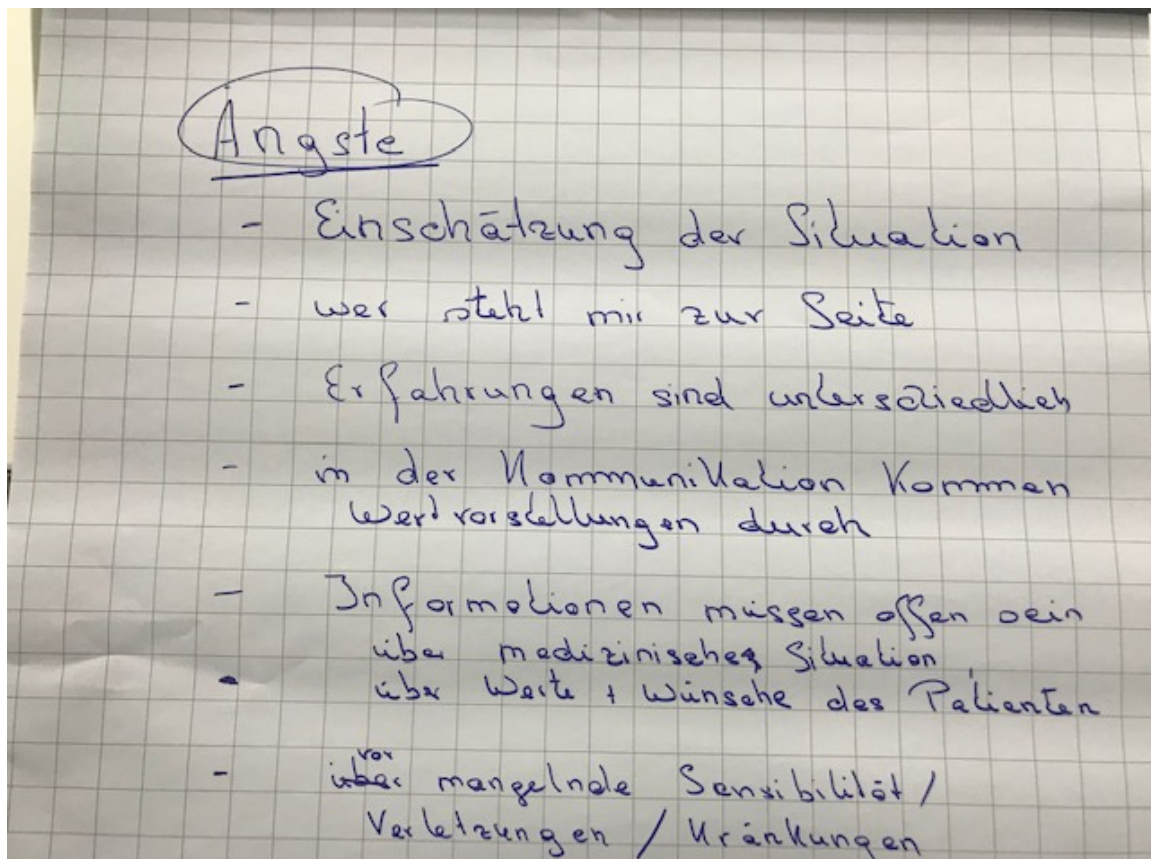 Ängste
- Einschätzung der Situation
- wer steht mir zur Seite
- Erfahrungen sind unterschiedlich
- in der Kommunikation kommen
Wertvorstellungen durch
- Informationen müssen offen sein
über medizinische Situation
- über Werte + Wünsche des Patienten
vor
- über mangelnde Sensibilität /
Verletzungen / Kränkungen